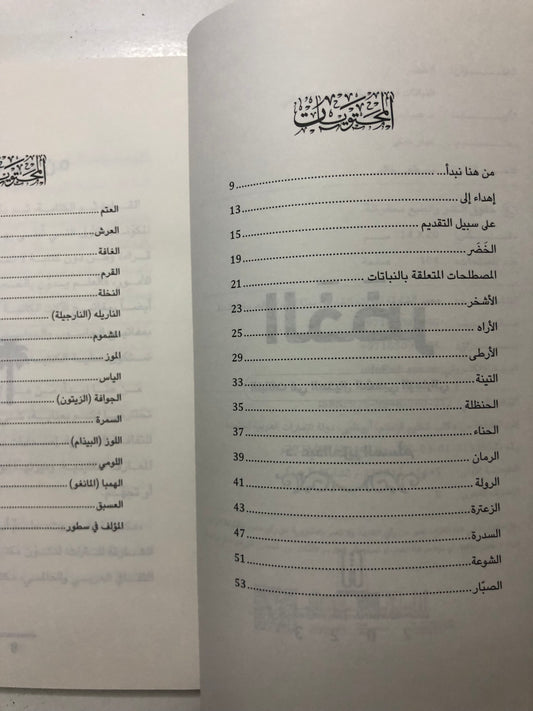 المحتويات
من هنا نبدأ... 9
إهداء إلى 13
على سبيل التقديم 15
الخَضَر 19
المصطلحات المتعلقة بالنباتات 21
الأشخر 23
الأراه 25
الأرطى 29
التينة 33
الحنظلة 35
الحناء 37
الرمان 39
الرولة 41
الزعترة 43
السدرة 47
الشوعة 51
الصبّار 53
المحتويات
العتم
العرش
الغافة
القرم
النخلة
الناريله (النارجيلة)
المشموم
الموز
الياس
الجوافة (الزيتون)
السمرة
اللوز (البيذام)
اللومي
الهمبا (المانغو)
العسبق
المؤلف في سطور